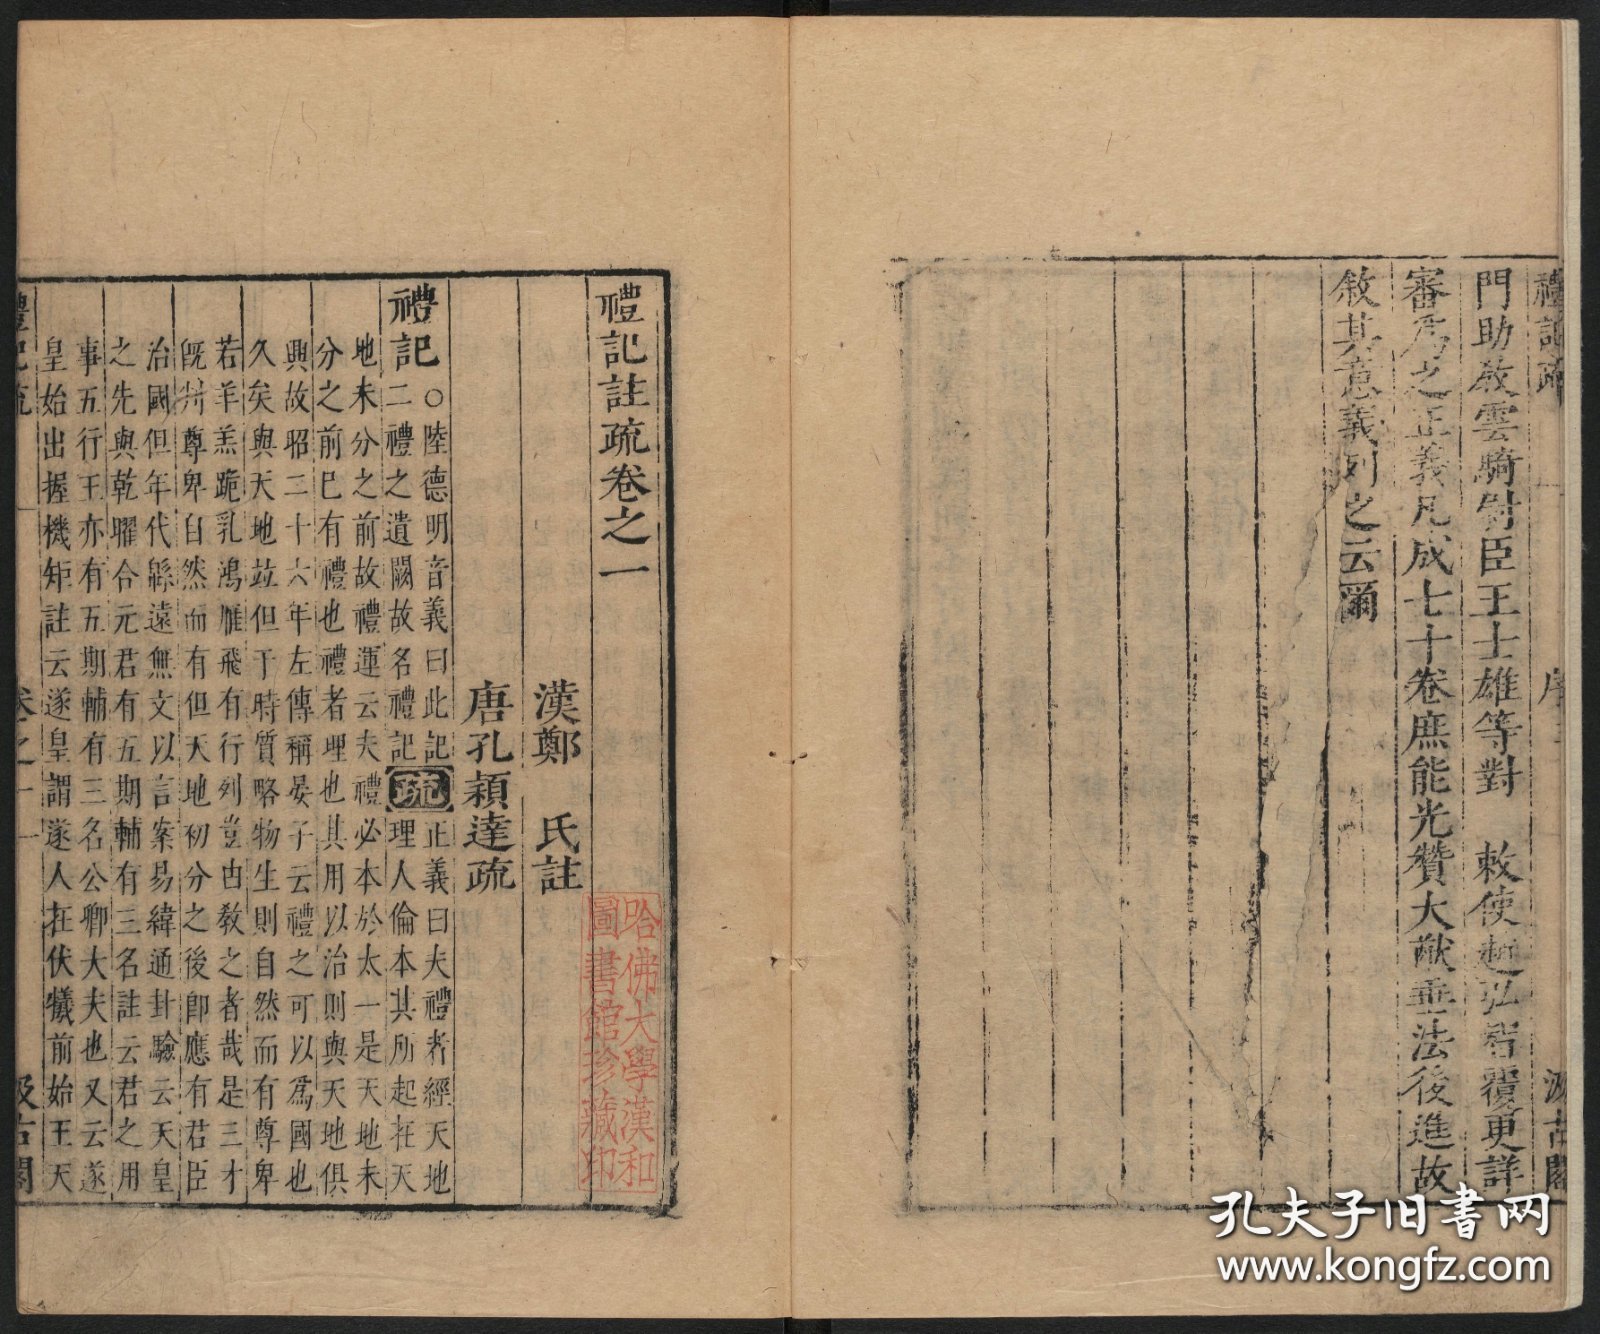 禮記疏
序
汲古閣
門助敎雲騎尉臣王士雄等對 敕使趙弘智覆更詳
審爲之正義凡成七十卷庶能光贊大猷垂法後進故
敘其意義列之云爾
禮記註疏卷之一
漢鄭 氏註
唐孔穎達疏
禮記
○陸德明音義曰此記
二禮之遺闕故名禮記
疏
正義曰夫禮者經天地
理人倫本其所起在天
地未分之前故禮運云夫禮必本於太一是天地未
分之前已有禮也禮者理也其用以治則與天地俱
興故昭二十六年左傳稱晏子云禮之可以爲國也
久矣與天地竝但于時質略物生則自然而有尊卑
若羊羔跪乳鴻雁飛有行列豈由敎之者哉是三才
旣判尊卑自然而有但天地初分之後卽應有君臣
治國但年代緜遠無文以言案易緯通卦驗云天皇
之先與乾曜合元君有五期輔有三名註云君之用
事五行王亦有五期輔有三名公卿大夫也又云遂
皇始出握機矩註云遂皇謂遂人在伏犧前始王天
禮記疏
卷之一
一
汲古閣
哈佛大學漢和
圖書館珍藏印
孔夫子旧書网
www.kongfz.com